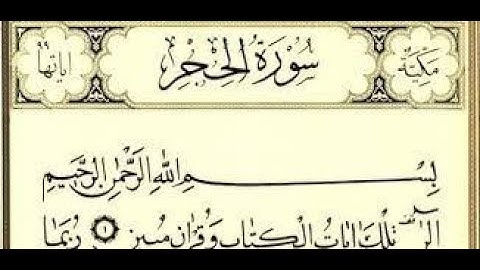 مكية سورة الحجر اياتها ٩٩
بسم الله الرحمن الرحيم
الر تلك ايات الكتاب وقران مبين ١ ربما